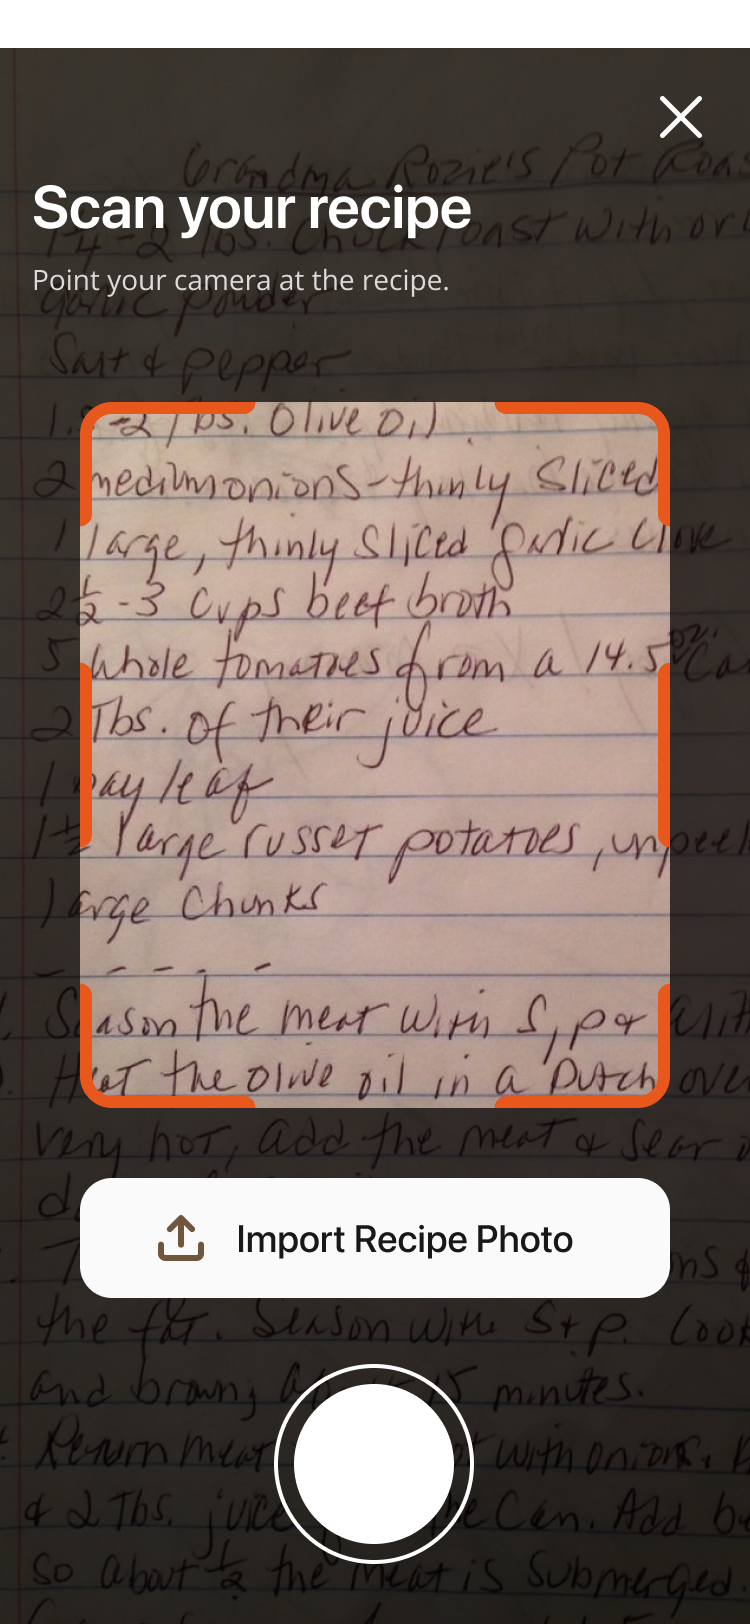 Grandma Rozie's Pot Roas
Scan your recipe
1¼-2 lbs. Chuck roast with or
Point your camera at the recipe.
garlic powder
Salt & pepper
1.5-2 Tbs. Olive Oil
2 medium onions-thinly Sliced
1 large, thinly Sliced garlic Clove
2½-3 Cups beef broth
5 whole tomatoes from a 14.5 oz. Ca
2 Tbs. of their juice
1 bay leaf
1½ large russet potatoes, unpeel
large Chunks
- - - - -
Season the meat with S, p &
Heat the olive oil in a Dutch ove
very hot, add the meat & sear
Import Recipe Photo
the fat. Season with S+p. Cook
and brown, 15 minutes.
Return meat with onions.
& 2 Tbs. juice the Can. Add b
so about ½ the meat is Submerged.